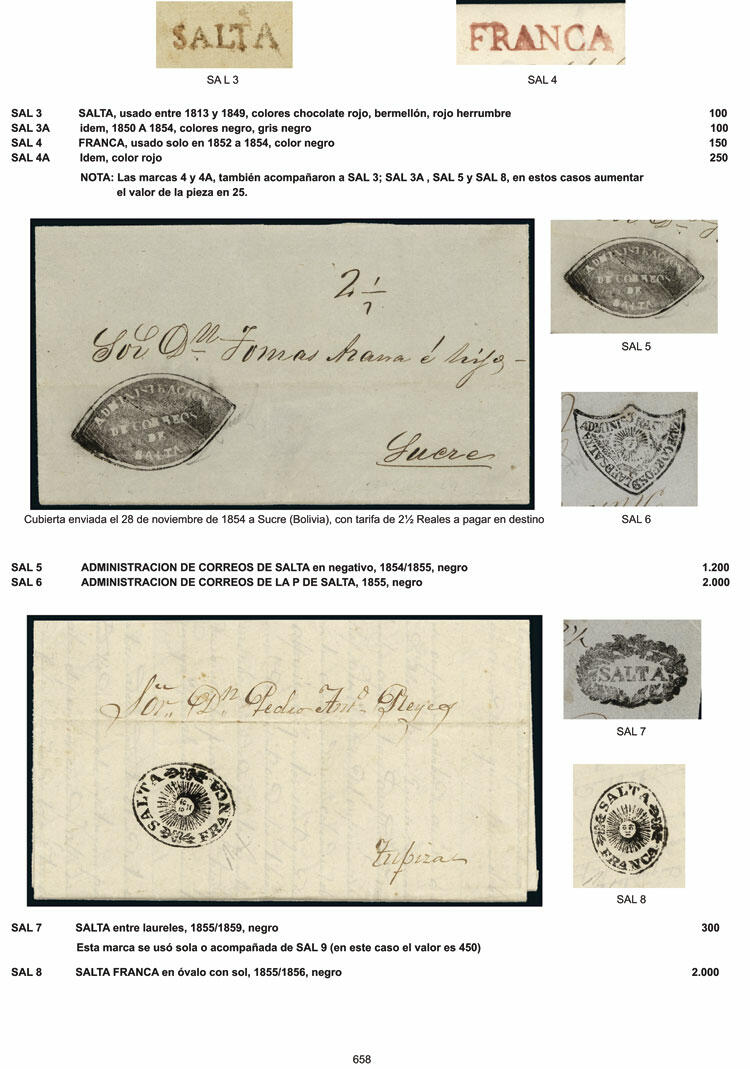 SALTA
FRANCA
SAL 3
SAL 4
SAL 3 SALTA, usado entre 1813 y 1849, colores chocolate rojo, bermellón, rojo herrumbre 100
SAL 3A idem, 1850 A 1854, colores negro, gris negro 100
SAL 4 FRANCA, usado solo en 1852 a 1854, color negro 150
SAL 4A Idem, color rojo 250
NOTA: Las marcas 4 y 4A, también acompañaron a SAL 3; SAL 3A , SAL 5 y SAL 8, en estos casos aumentar
el valor de la pieza en 25.
2 1/
Sor Dn Tomas Arana é hijo
ADMINISTRACION
DE CORREOS
DE
SALTA
Sucre
ADMINISTRACION
DE CORREOS
DE
SALTA
SAL 5
SAL 6
Cubierta enviada el 28 de noviembre de 1854 a Sucre (Bolivia), con tarifa de 2½ Reales a pagar en destino
SAL 5 ADMINISTRACION DE CORREOS DE SALTA en negativo, 1854/1855, negro 1.200
SAL 6 ADMINISTRACION DE CORREOS DE LA P DE SALTA, 1855, negro 2.000
Sor. Dn Pedro Anto Reyes
SALTA
FRANCA
Tupiza
SALTA
SAL 7
SALTA
FRANCA
SAL 8
SAL 7 SALTA entre laureles, 1855/1859, negro 300
Esta marca se usó sola o acompañada de SAL 9 (en este caso el valor es 450)
SAL 8 SALTA FRANCA en óvalo con sol, 1855/1856, negro 2.000
658